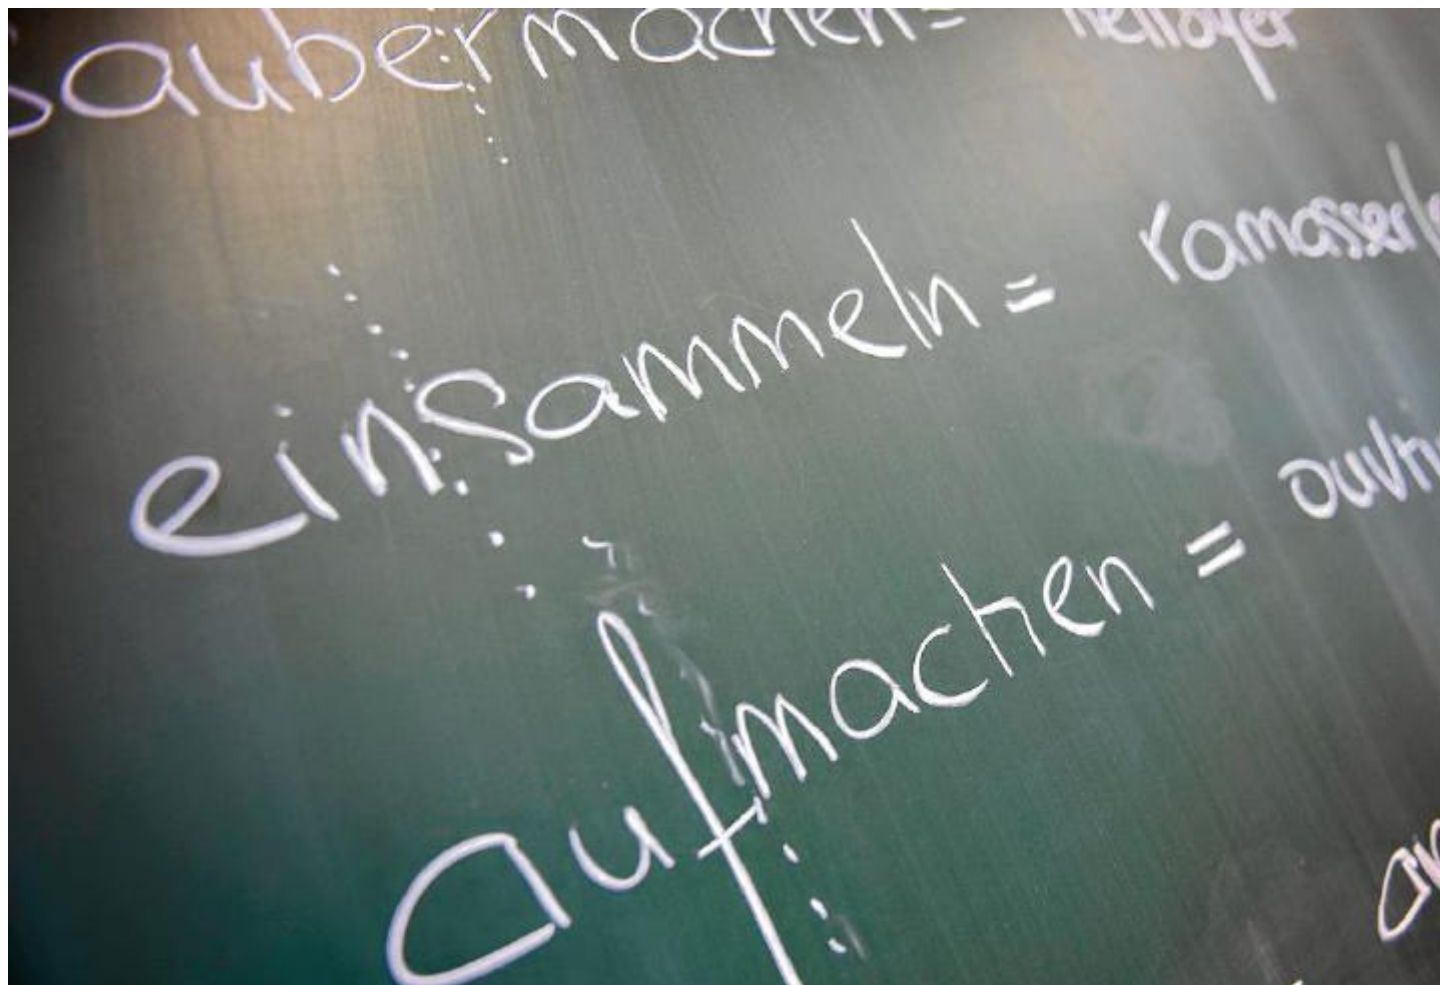 saubermachen = nettoyer
einsammeln = ramasser/
aufmachen = ouvri